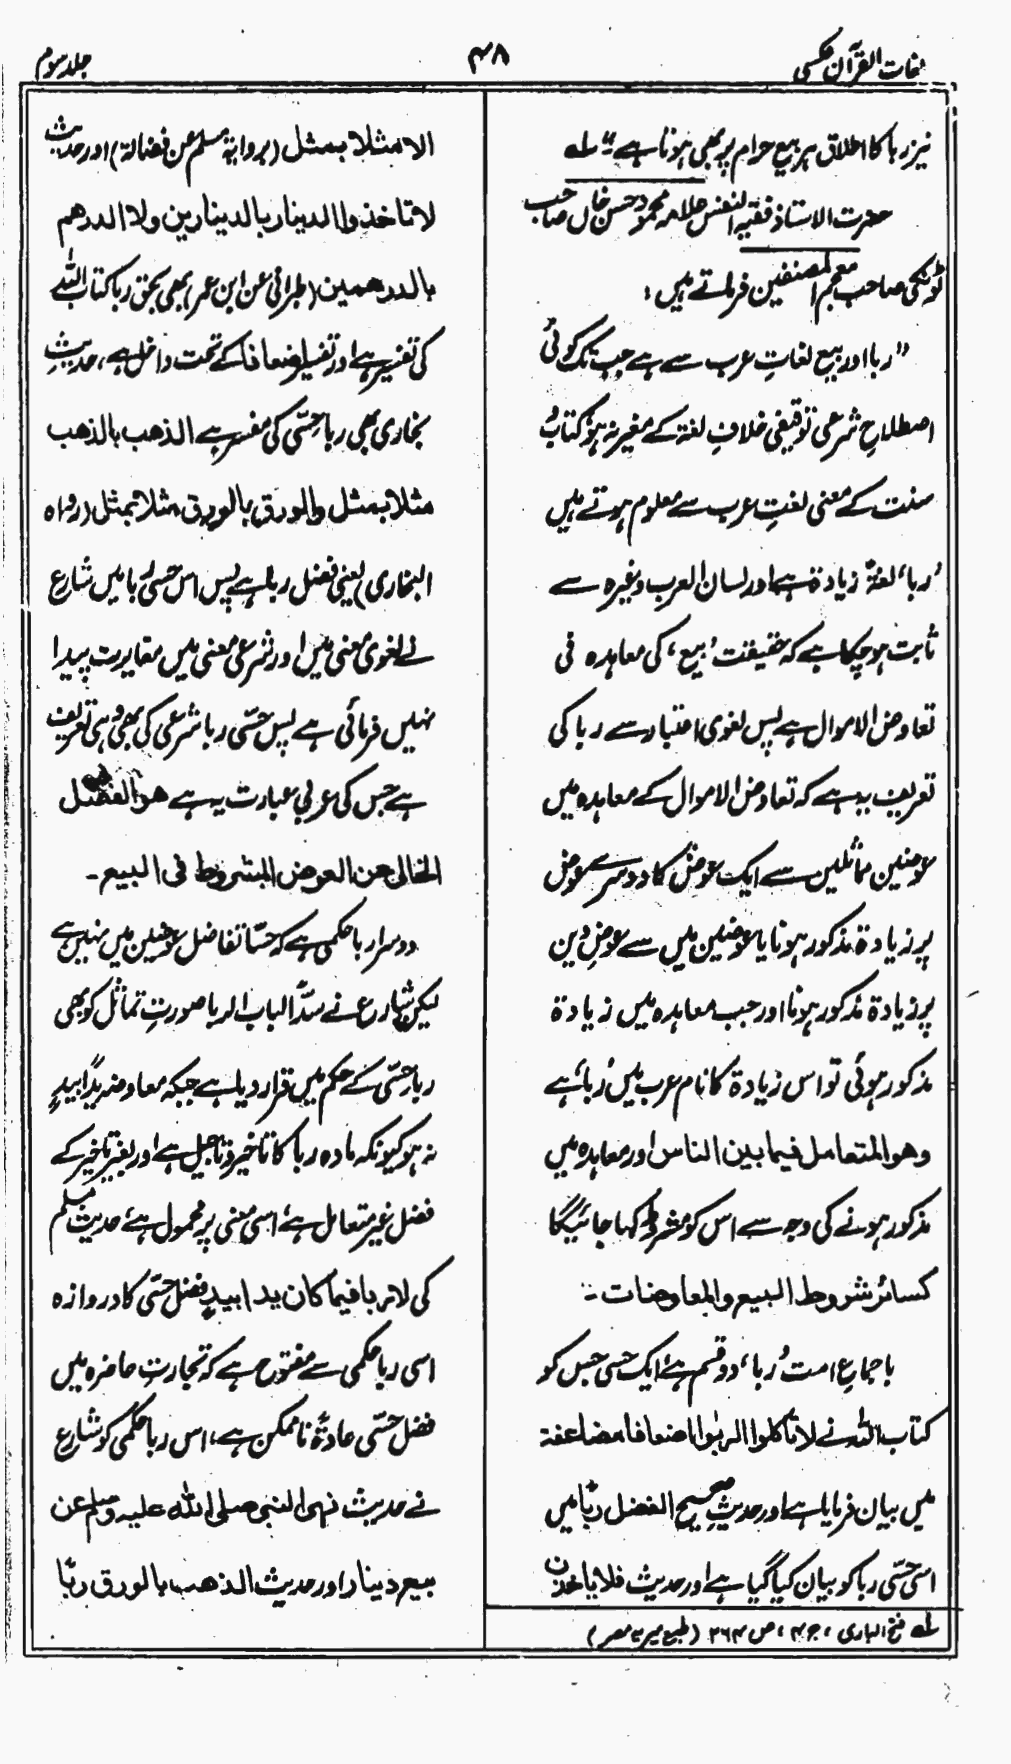 لغات القرآن عکسی
۴۸
جلد سوم
نیز ربا کا اطلاق ہر بیع حرام پر بھی ہوتا ہے" لہ
حضرت الاستاذ فقیہ النفس علامہ محمود حسن خاں صاحب
ٹونکی صاحب معجم المصنفین فرماتے ہیں :
"ربا اور بیع لغاتِ عرب سے ہے جب تک کوئی
اصطلاحِ شرعی توقیفی خلافِ لغۃ کے مغیر نہ ہو کتاب و
سنت کے معنی لغتِ عرب سے معلوم ہوتے ہیں
'ربا' لغۃً زیادۃ ہے اور لسان العرب وغیرہ سے
ثابت ہو چکا ہے کہ حقیقت 'بیع' کی معاہدہ فی
تعاوض الاموال ہے پس لغوی اعتبار سے ربا کی
تعریف یہ ہے کہ تعاوض الاموال کے معاہدہ میں
عوضین مماثلین سے ایک عوض کا دوسرے عوض
پر زیادۃ مذکور ہونا یا عوضین میں سے عوض دین
پر زیادۃ مذکور ہونا اور جب معاہدہ میں زیادۃ
مذکور ہوئی تو اس زیادۃ کا نام عرب میں 'ربا' ہے
وهو المتعامل فیما بین الناس اور معاہدہ میں
مذکور ہونے کی وجہ سے اس کو مشروط کہا جائیگا
کسائر شروط البیع والمعاوضات :-
باجماعِ امت 'ربا' دو قسم ہے' ایک حسی جس کو
کتاب اللہ نے لا تاکلوا الربٰوا اضعافا مضاعفة
میں بیان فرمایا ہے اور حدیثِ صحیح الفضل ربًا میں
اسی حسّی ربا کو بیان کیا گیا ہے اور حدیث فلا یاخذن
لہ فتح الباری ، ج ۴ ، ص ۲۶۴ (طبع میریہ مصر)
الا مثلا بمثل (بروایة مسلم عن فضالة) اور حدیث
لا تاخذوا الدینار بالدینارین ولا الدرهم
بالدرهمین (طبرانی عن ابن عمر) بھی بحق ربا کتاب اللہ
کی تفسیر ہے اور تفسیر اضعافا کے تحت داخل ہے، حدیثِ
بخاری بھی ربا حسّی کی مفسر ہے الذهب بالذهب
مثلا بمثل والورق بالورق مثلا بمثل (رواہ
البخاری) یعنی فضل ربا ہے پس اس حسّی ربا میں شارع
نے لغوی معنی میں اور شرعی معنی میں مغایرت پیدا
نہیں فرمائی ہے پس حسّی ربا شرعی کی بھی وہی تعریف
ہے جس کی عربی عبارت یہ ہے هو الفضل
الخالی عن العوض المشروط فی البیع -
دوسرا ربا حکمی ہے کہ حسّاً تفاضل عوضین میں نہیں ہے
لیکن شارع نے سدّاً لباب الربا صورتِ تماثل کو بھی
ربا حسّی کے حکم میں قرار دیا ہے جبکہ معاوضہ یداً بیدٍ
نہ ہو کیونکہ مادہ ربا کا تاخیر و تاجیل ہے اور بغیر تاخیر کے
فضل غیر متعامل ہے' اسی معنی پر محمول ہے' حدیث مسلم
کی لا ربا فیما کان یدا بیدٍ فضل حسّی کا دروازہ
اسی ربا حکمی سے مفتوح ہے کہ تجارتِ حاضرہ میں
فضل حسّی عادۃً ناممکن ہے، اس ربا حکمی کو شارع
نے حدیث نهی النبی صلی اللہ علیہ وسلم عن
بیع دینار اور حدیث الذهب بالورق ربًا